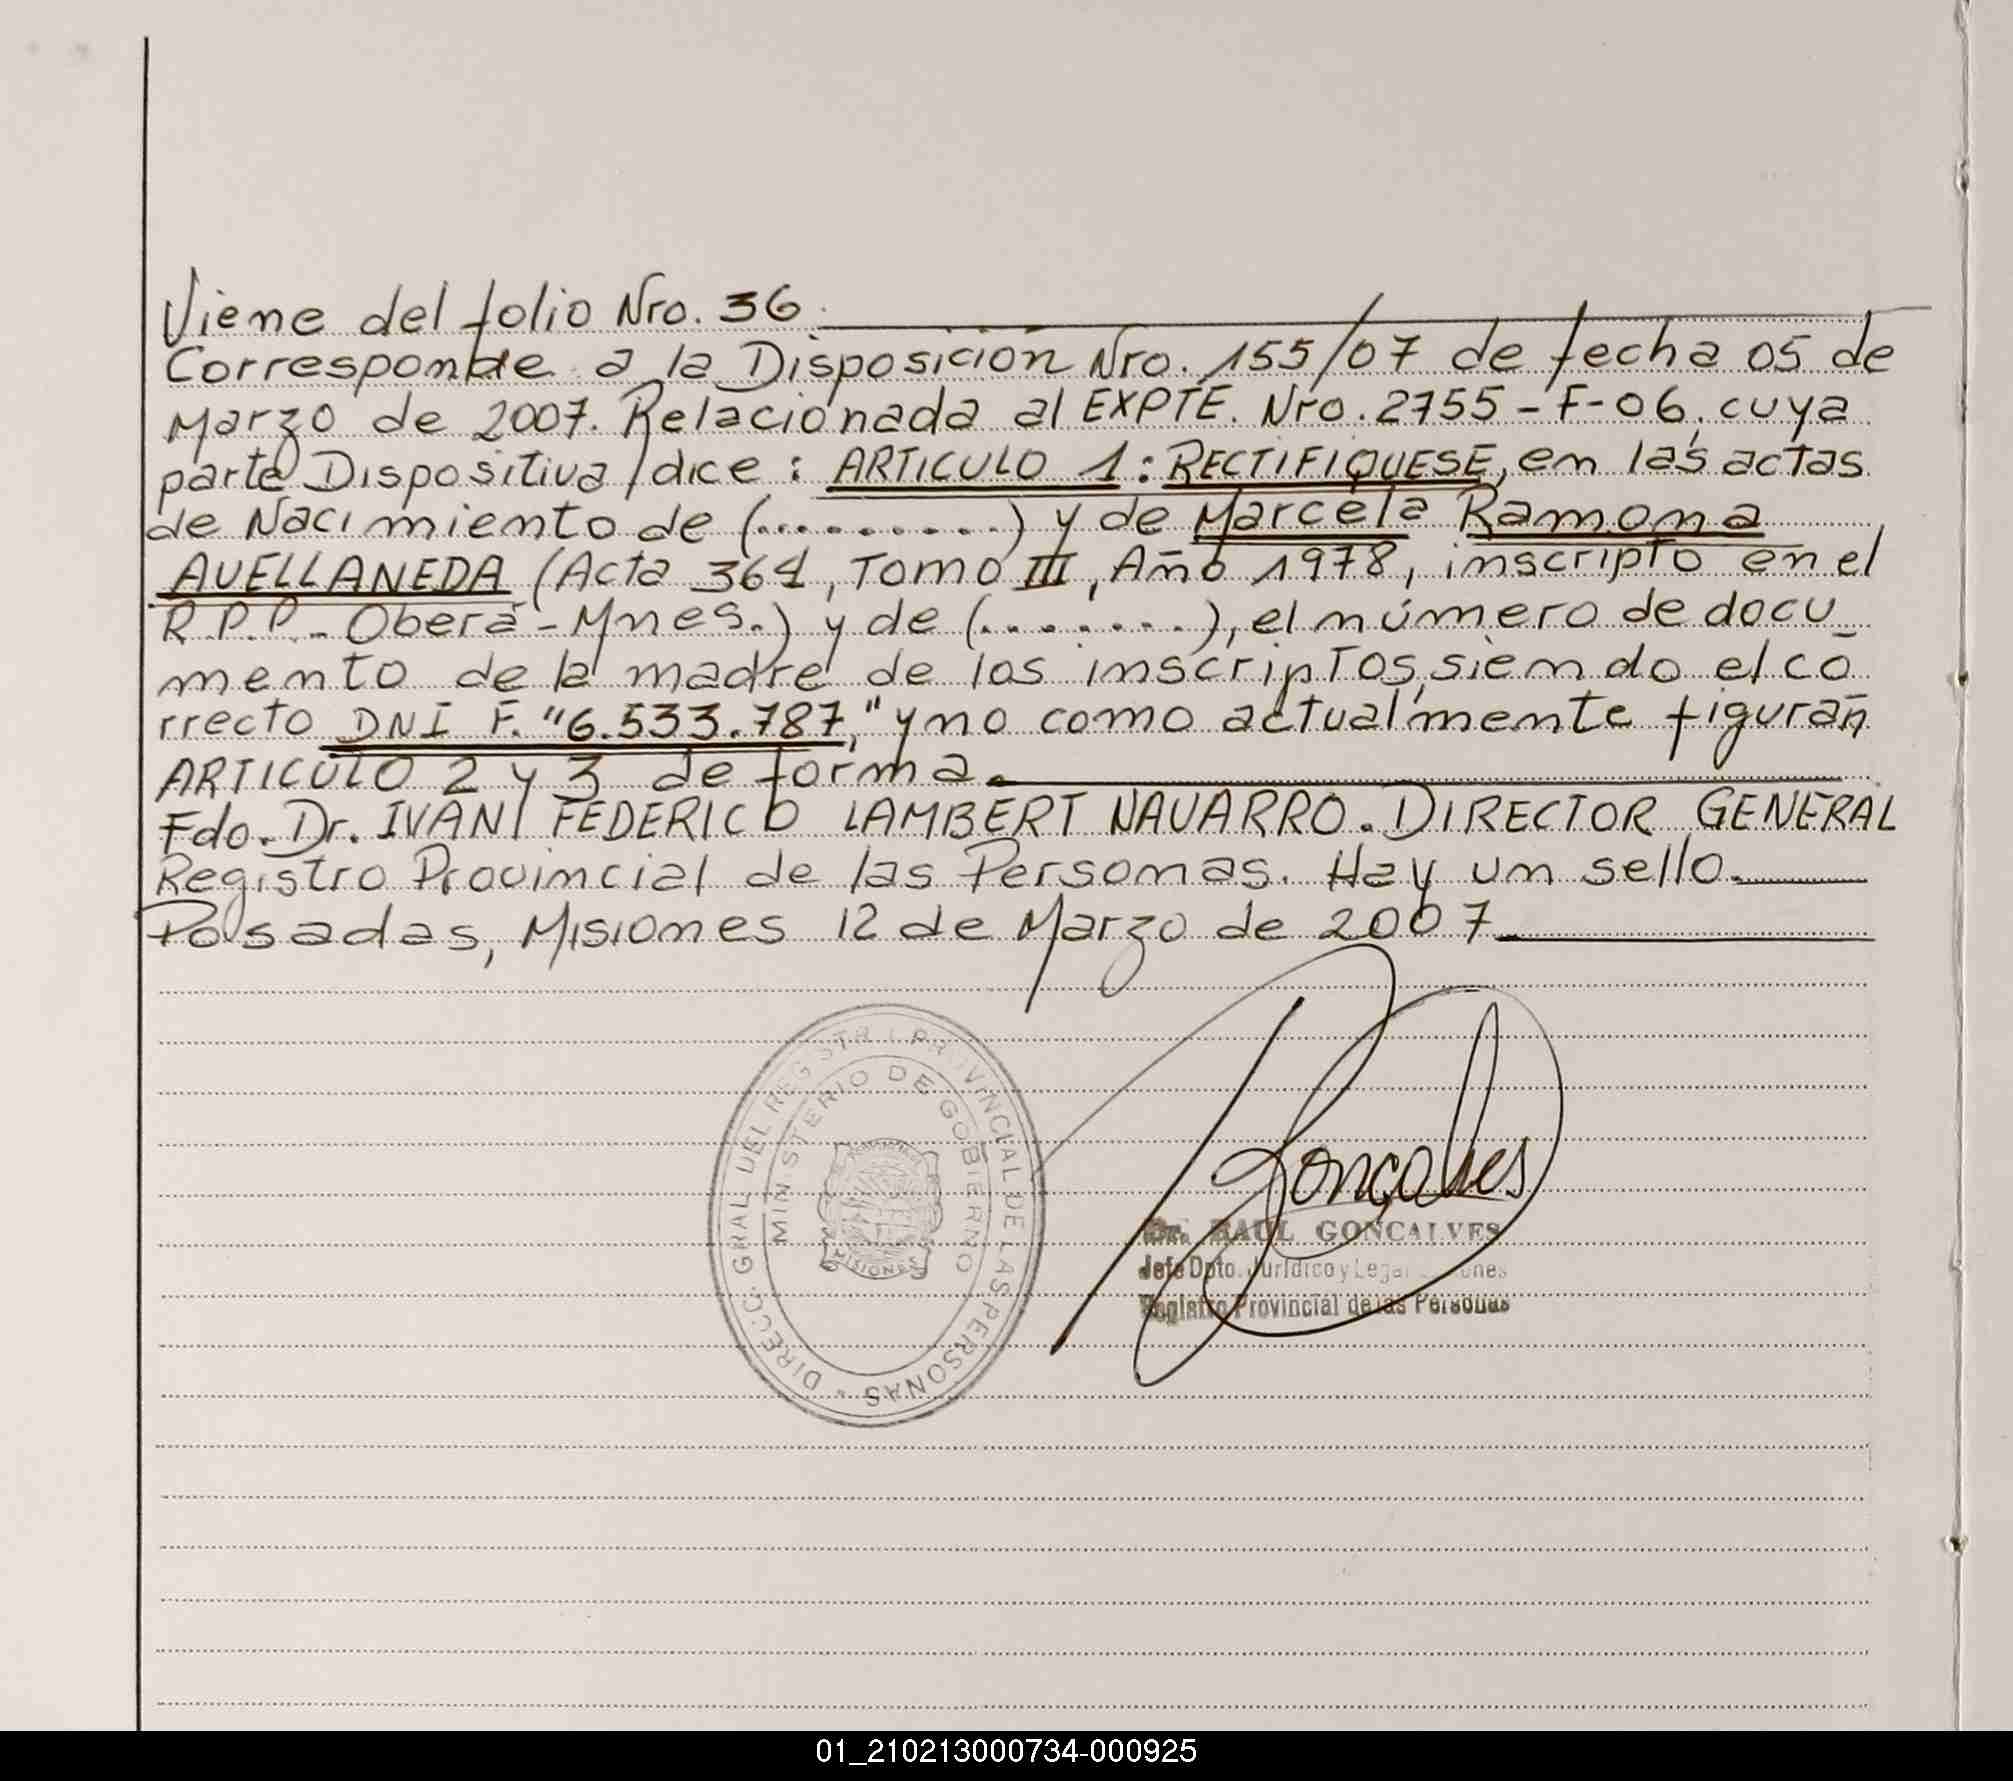 Viene del folio Nro. 36.
Corresponde a la Disposición Nro. 155/07 de fecha 05 de
Marzo de 2007. Relacionada al EXPTE. Nro. 2755-F-06, cuya
parte Dispositiva dice: ARTICULO 1: RECTIFIQUESE, en las actas
de Nacimiento de (..........) y de Marcela Ramona
AVELLANEDA (Acta 364, Tomo III, Año 1978, inscripto en el
R.P.P. - Oberá - Mnes.) y de (........), el número de docu_
mento de la madre de los inscriptos, siendo el co_
rrecto DNI F. "6.533.787," y no como actualmente figuran
ARTICULO 2 y 3 de forma.
Fdo. Dr. IVAN FEDERICO LAMBERT NAVARRO. DIRECTOR GENERAL
Registro Provincial de las Personas. Hay un sello.
Posadas, Misiones 12 de Marzo de 2007.
DIRECC. GRAL DEL REGISTRO PROVINCIAL DE LAS PERSONAS
MINISTERIO DE GOBIERNO
MISIONES
Goncalves
Dr. RAUL GONCALVES
Jefe Dpto. Jurídico y
Registro Provincial de las Personas
01_210213000734-000925